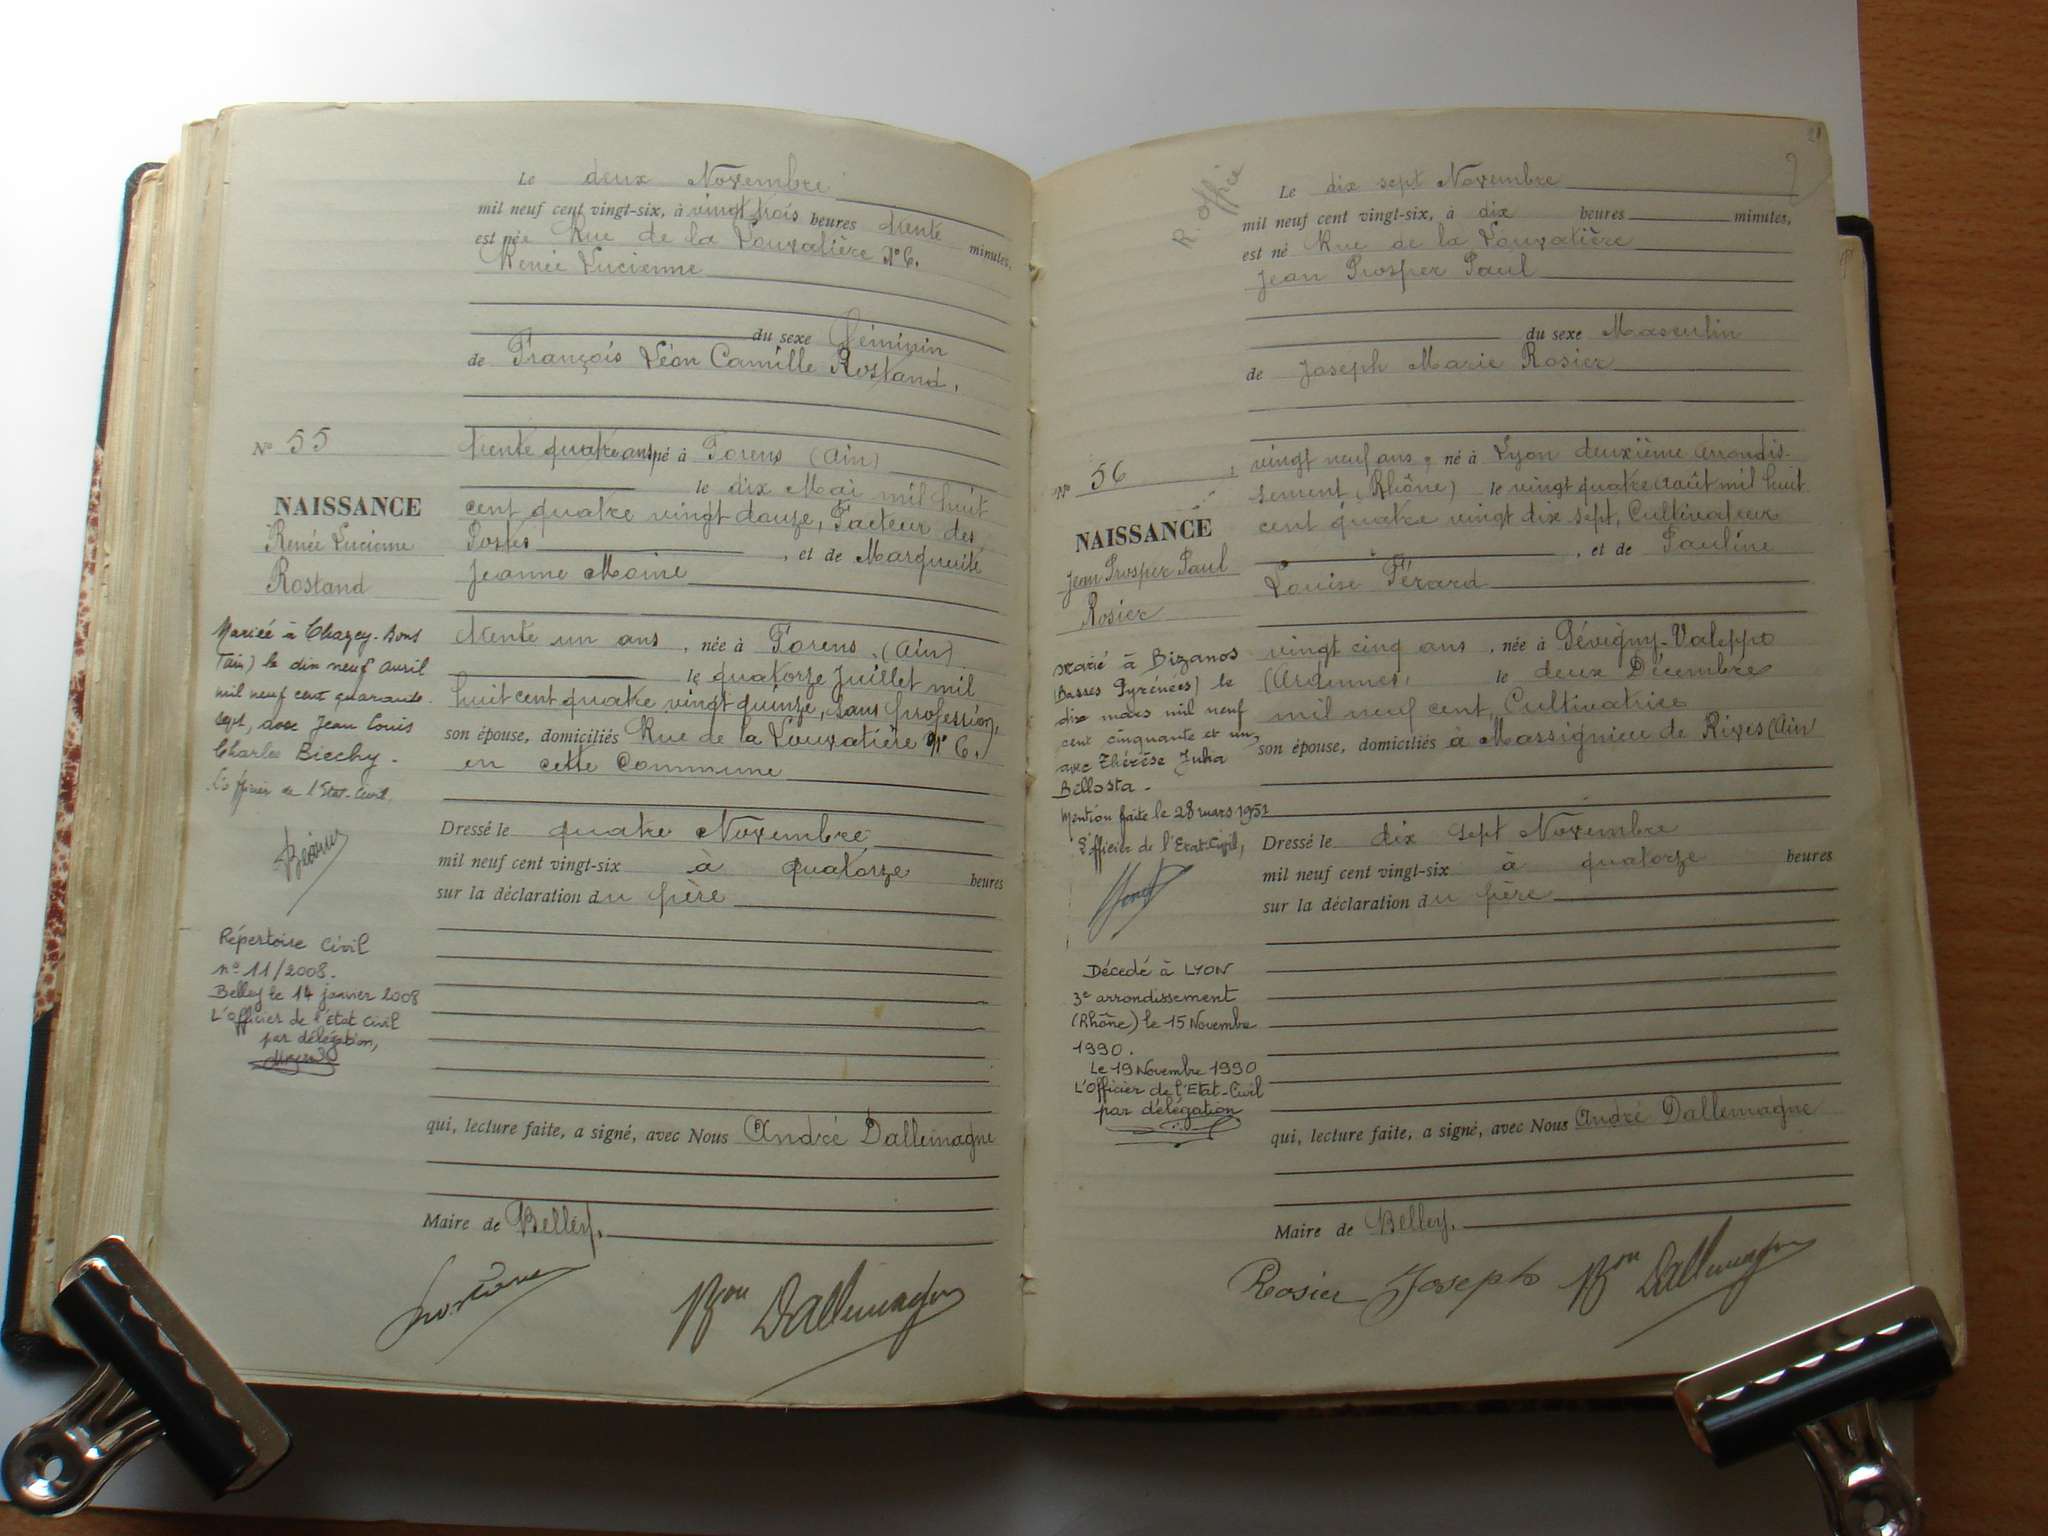 Le deux Novembre
mil neuf cent vingt-six, à vingt trois heures trente minutes,
est née Rue de la Louvatière N° 6.
Renée Lucienne
du sexe Féminin
de François Léon Camille Rostand,
N° 55
trente quatre ans né à Torens (Ain)
le dix Mai mil huit
cent quatre vingt douze, Facteur des
Postes, et de Marguerite
Jeanne Moine
trente un ans, née à Torens, (Ain)
le quatorze Juillet mil
huit cent quatre vingt quinze, sans profession,
son épouse, domiciliés Rue de la Louvatière N° 6.
en cette Commune
Dressé le quatre Novembre
mil neuf cent vingt-six à quatorze heures
sur la déclaration du père
qui, lecture faite, a signé, avec Nous André Dallemagne
Maire de Belley.
Bon Dallemagne
NAISSANCE
Renée Lucienne
Rostand
Mariée à Chazey-Bons
(Ain) le dix neuf avril
mil neuf cent quarante
sept, avec Jean Louis
Charles Biechy.
L'officier de l'Etat-Civil
Répertoire Civil
n° 11/2008.
Belley le 14 janvier 2008
L'Officier de l'Etat Civil
par délégation,
21
R. Office
Le dix sept Novembre
mil neuf cent vingt-six, à dix heures minutes,
est né Rue de la Louvatière
Jean Prosper Paul
du sexe Masculin
de Joseph Marie Rosier
N° 56
vingt neuf ans, né à Lyon deuxième arrondis-
sement (Rhône) le vingt quatre Août mil huit
cent quatre vingt dix sept, Cultivateur
, et de Pauline
Louise Férard
vingt cinq ans, née à Sévigny-Valeppo
(Ardennes) le deux Décembre
mil neuf cent, Cultivatrice
son épouse, domiciliés à Massignieu de Rives (Ain)
Dressé le dix sept Novembre
mil neuf cent vingt-six à quatorze heures
sur la déclaration du père
qui, lecture faite, a signé, avec Nous André Dallemagne
Maire de Belley.
Rosier Joseph Bon Dallemagne
NAISSANCE
Jean Prosper Paul
Rosier
Marié à Bizanos
(Basses Pyrénées) le
dix mars mil neuf
cent cinquante et un,
avec Thérèse Julia
Bellosta.
Mention faite le 28 mars 1951
L'officier de l'Etat-Civil,
Décedé à LYON
3e arrondissement
(Rhône) le 15 Novembre
1990.
Le 19 Novembre 1990
L'Officier de l'Etat-Civil
par délégation